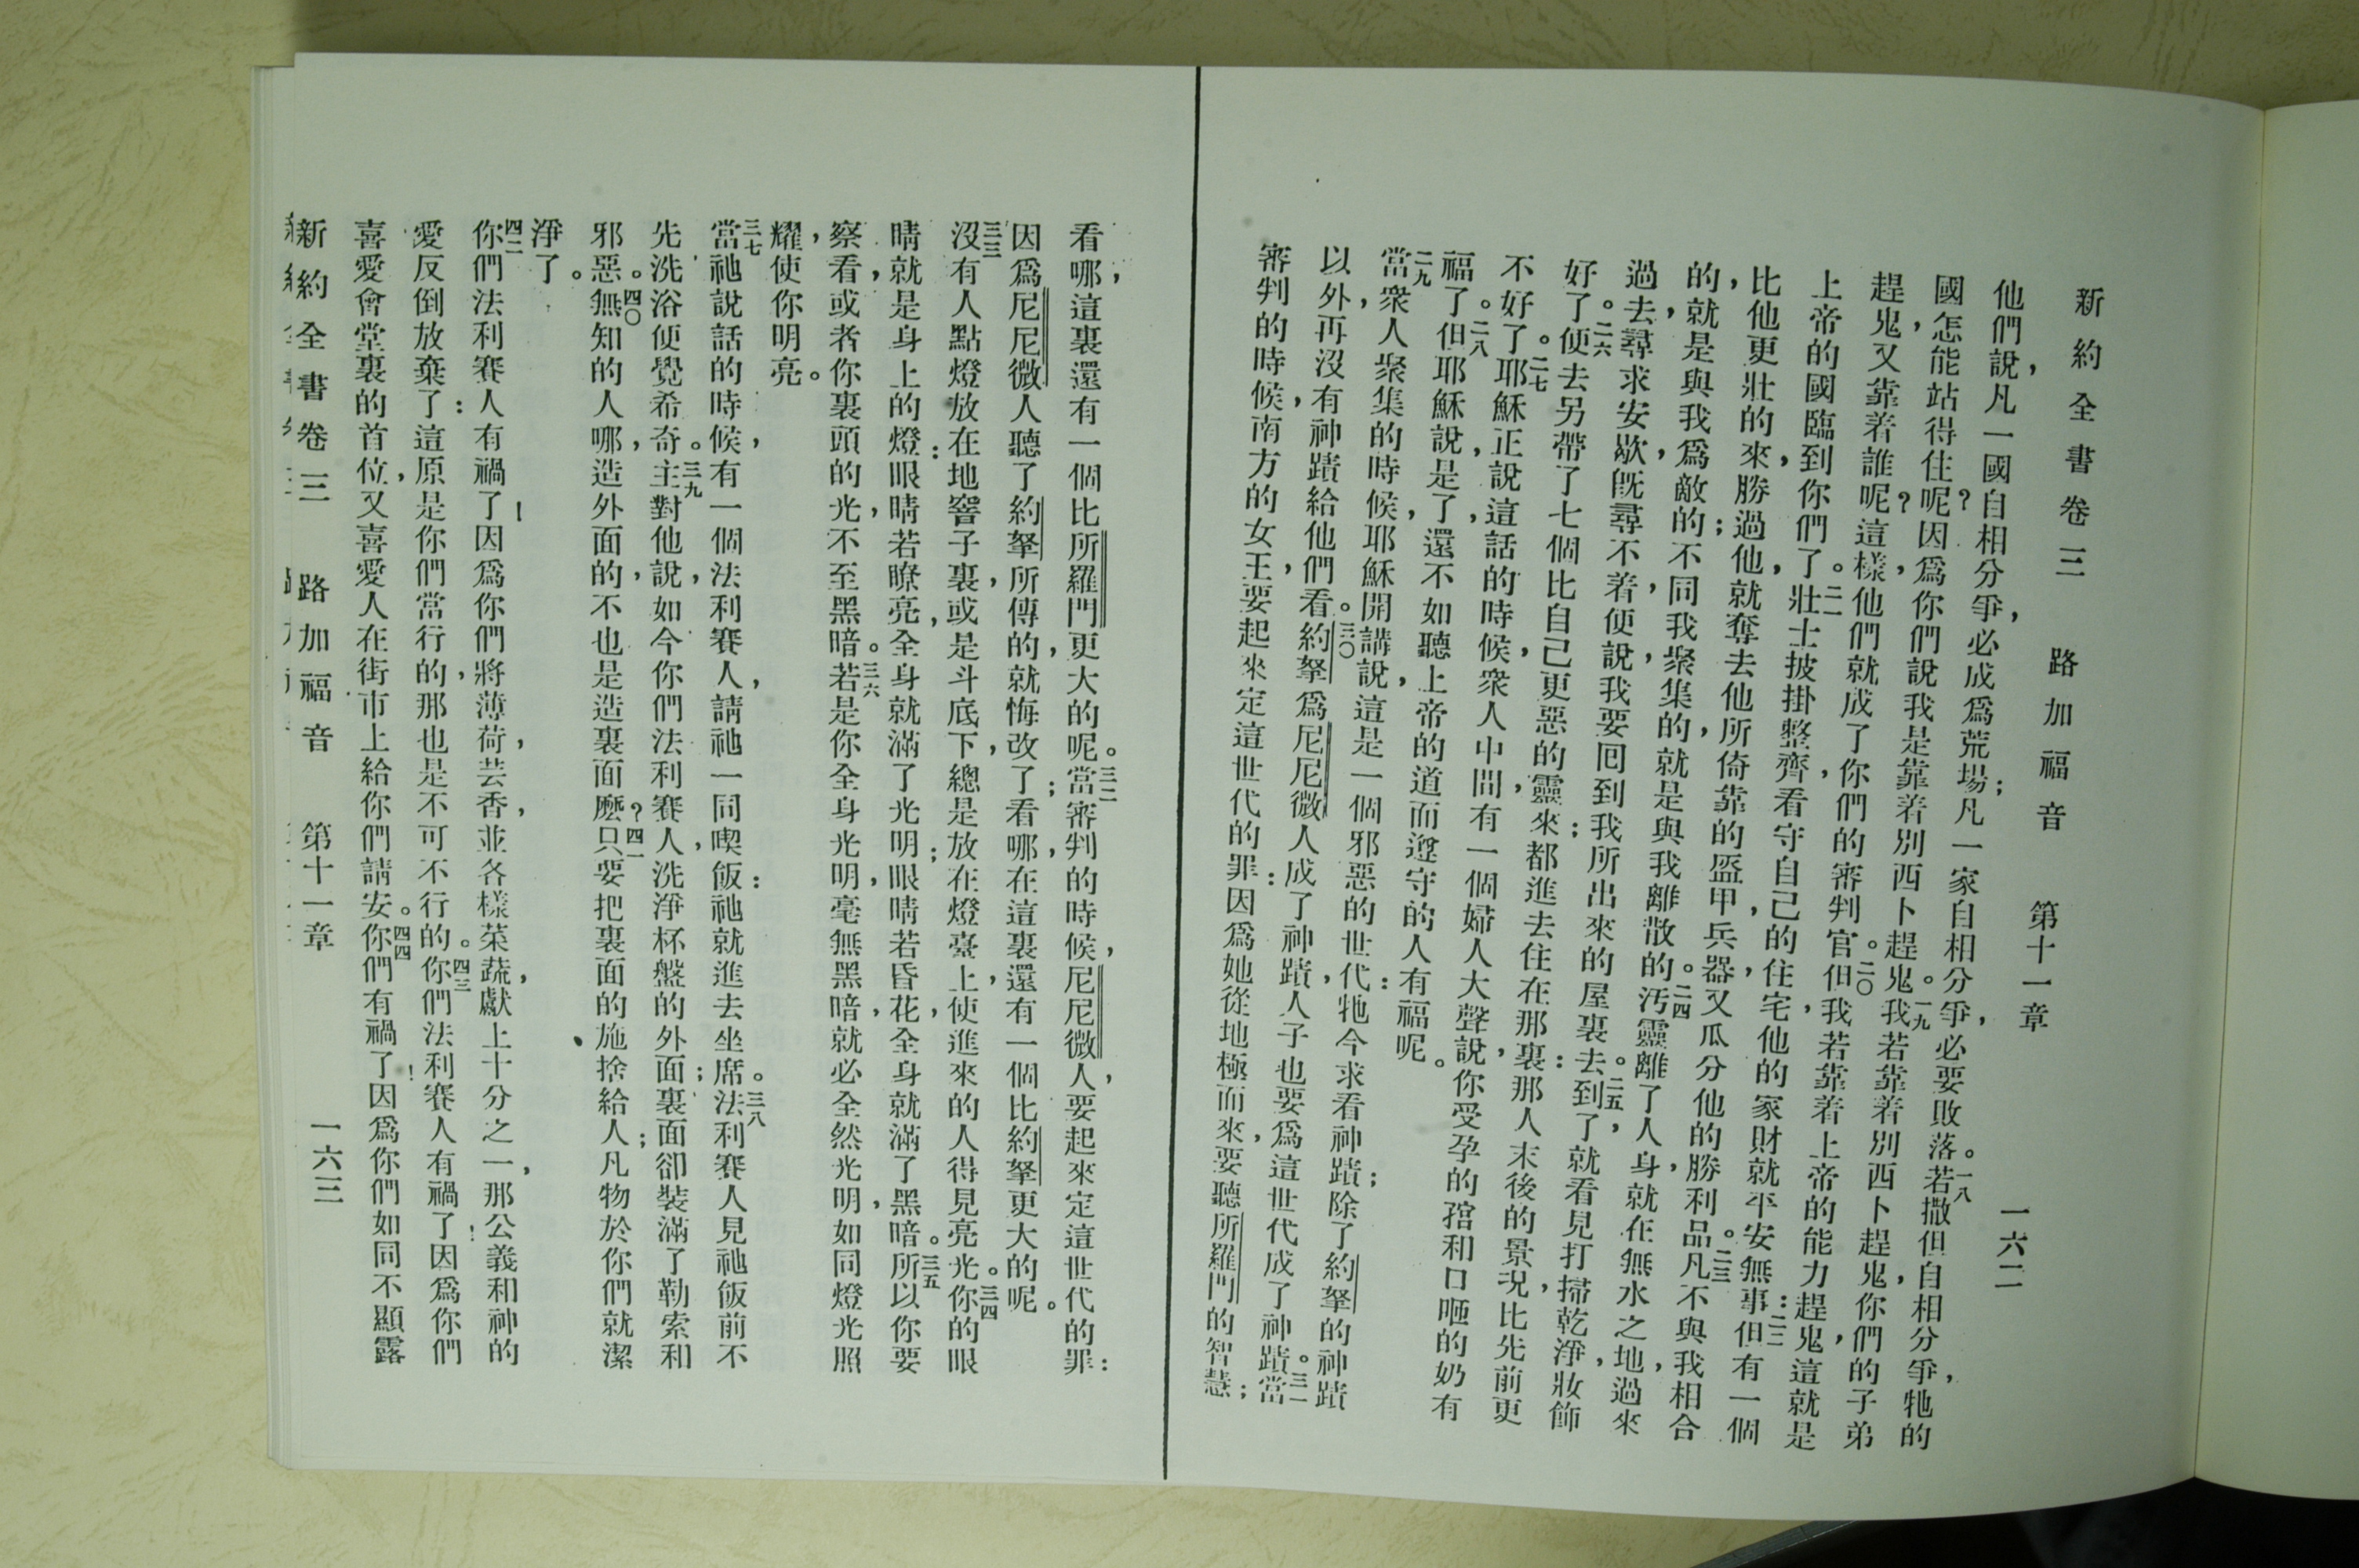 新約全書卷三 路加福音 第十一章 一六二
他們說，凡一國自相分爭，必成爲荒場；凡一家自相分爭，必要敗落。一八若撒但自相分爭，牠的
國怎能站得住呢？因爲你們說我是靠着別西卜趕鬼。一九我若靠着別西卜趕鬼，你們的子弟
趕鬼，又靠着誰呢？這樣，他們就成了你們的審判官。二〇但我若靠着上帝的能力趕鬼，這就是
上帝的國臨到你們了。二一壯士披掛整齊，看守自己的住宅，他的家財就平安無事：二二但有一個
比他更壯的來，勝過他，就奪去他所倚靠的盔甲，兵器，又瓜分他的勝利品。二三凡不與我相合
的，就是與我爲敵的；不同我聚集的，就是與我離散的。二四汚靈離了人身，就在無水之地，過來
過去，尋求安歇，旣尋不着，便說，我要回到我所出來的屋裏去：二五到了，就看見打掃乾淨，妝飾
好了。二六便去另帶了七個比自己更惡的靈來；都進去住在那裏：那人末後的景况，比先前更
不好了。二七耶穌正說這話的時候，衆人中間，有一個婦人大聲說，你受孕的䅵和口咂的奶有
福了。二八但耶穌說，是了，還不如聽上帝的道而遵守的人有福呢。
二九當衆人聚集的時候，耶穌開講說，這是一個邪惡的世代：牠今求看神蹟；除了約拏的神蹟
以外，再沒有神蹟給他們看。三〇約拏爲尼尼微人成了神蹟，人子也要爲這世代成了神蹟。三一當
審判的時候，南方的女王，要起來定這世代的罪：因爲她從地極而來，要聽所羅門的智慧；
看哪，這裏還有一個比所羅門更大的呢。三二當審判的時候，尼尼微人，要起來定這世代的罪：
因爲尼尼微人聽了約拏所傳的，就悔改了；看哪，在這裏還有一個比約拏更大的呢。
三三沒有人點燈放在地窨子裏，或是斗底下，總是放在燈臺上，使進來的人得見亮光。三四你的眼
睛就是身上的燈：眼睛若瞭亮，全身就滿了光明；眼睛若昏花，全身就滿了黑暗。三五所以你要
察看，或者你裏頭的光，不至黑暗。三六若是你全身光明，毫無黑暗，就必全然光明，如同燈光照
耀，使你明亮。
三七當祂說話的時候，有一個法利賽人，請祂一同喫飯：祂就進去坐席。三八法利賽人見祂飯前不
先洗浴便覺希奇。三九主對他說，如今你們法利賽人，洗淨杯盤的外面；裏面卻裝滿了勒索和
邪惡。四〇無知的人哪，造外面的，不也是造裏面麼？四一只要把裏面的施捨給人；凡物於你們就潔
淨了。
四二你們法利賽人有禍了！因爲你們將薄荷，芸香，並各樣菜蔬，獻上十分之一，那公義和神的
愛反倒放棄了：這原是你們當行的，那也是不可不行的。四三你們法利賽人有禍了！因爲你們
喜愛會堂裏的首位，又喜愛人在街市上給你們請安。四四你們有禍了！因爲你們如同不顯露
新約全書卷三 路加福音 第十一章 一六三